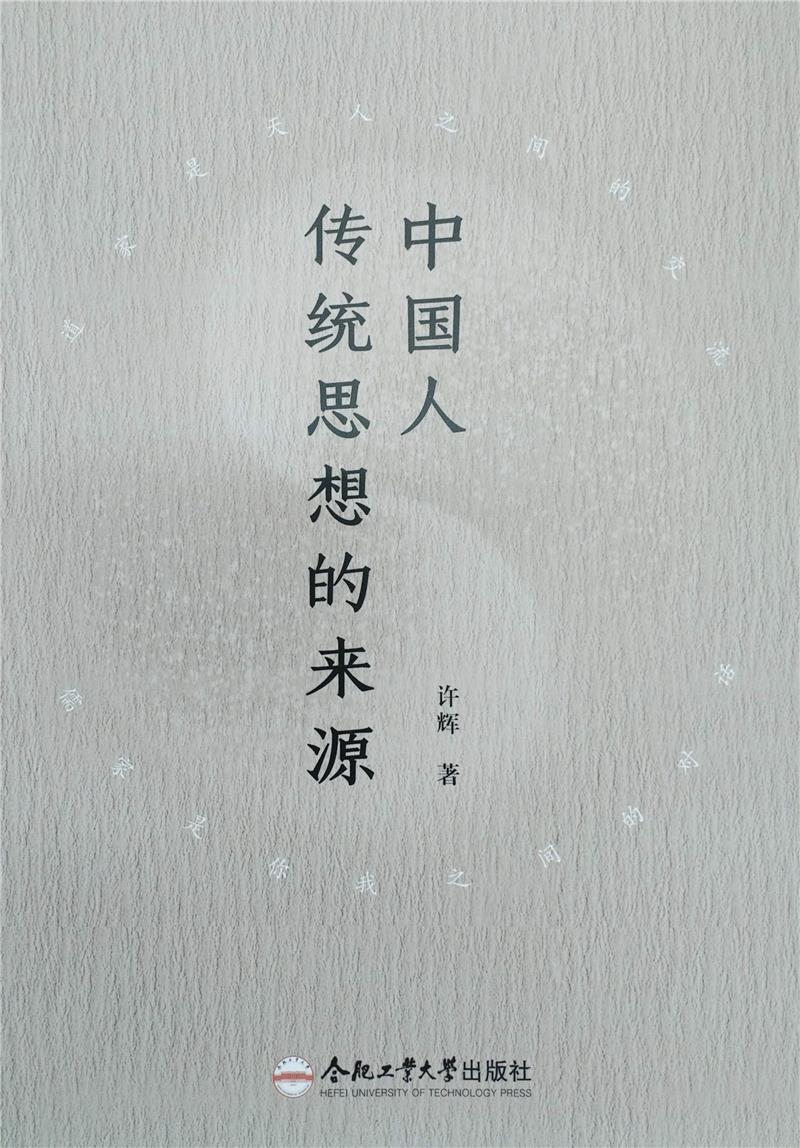 道家是天人之间的交流
中国人
传统思想的来源
许辉 著
儒家是你我之间的对话
合肥工业大学出版社
HEFEI UNIVERSITY OF TECHNOLOGY PRESS